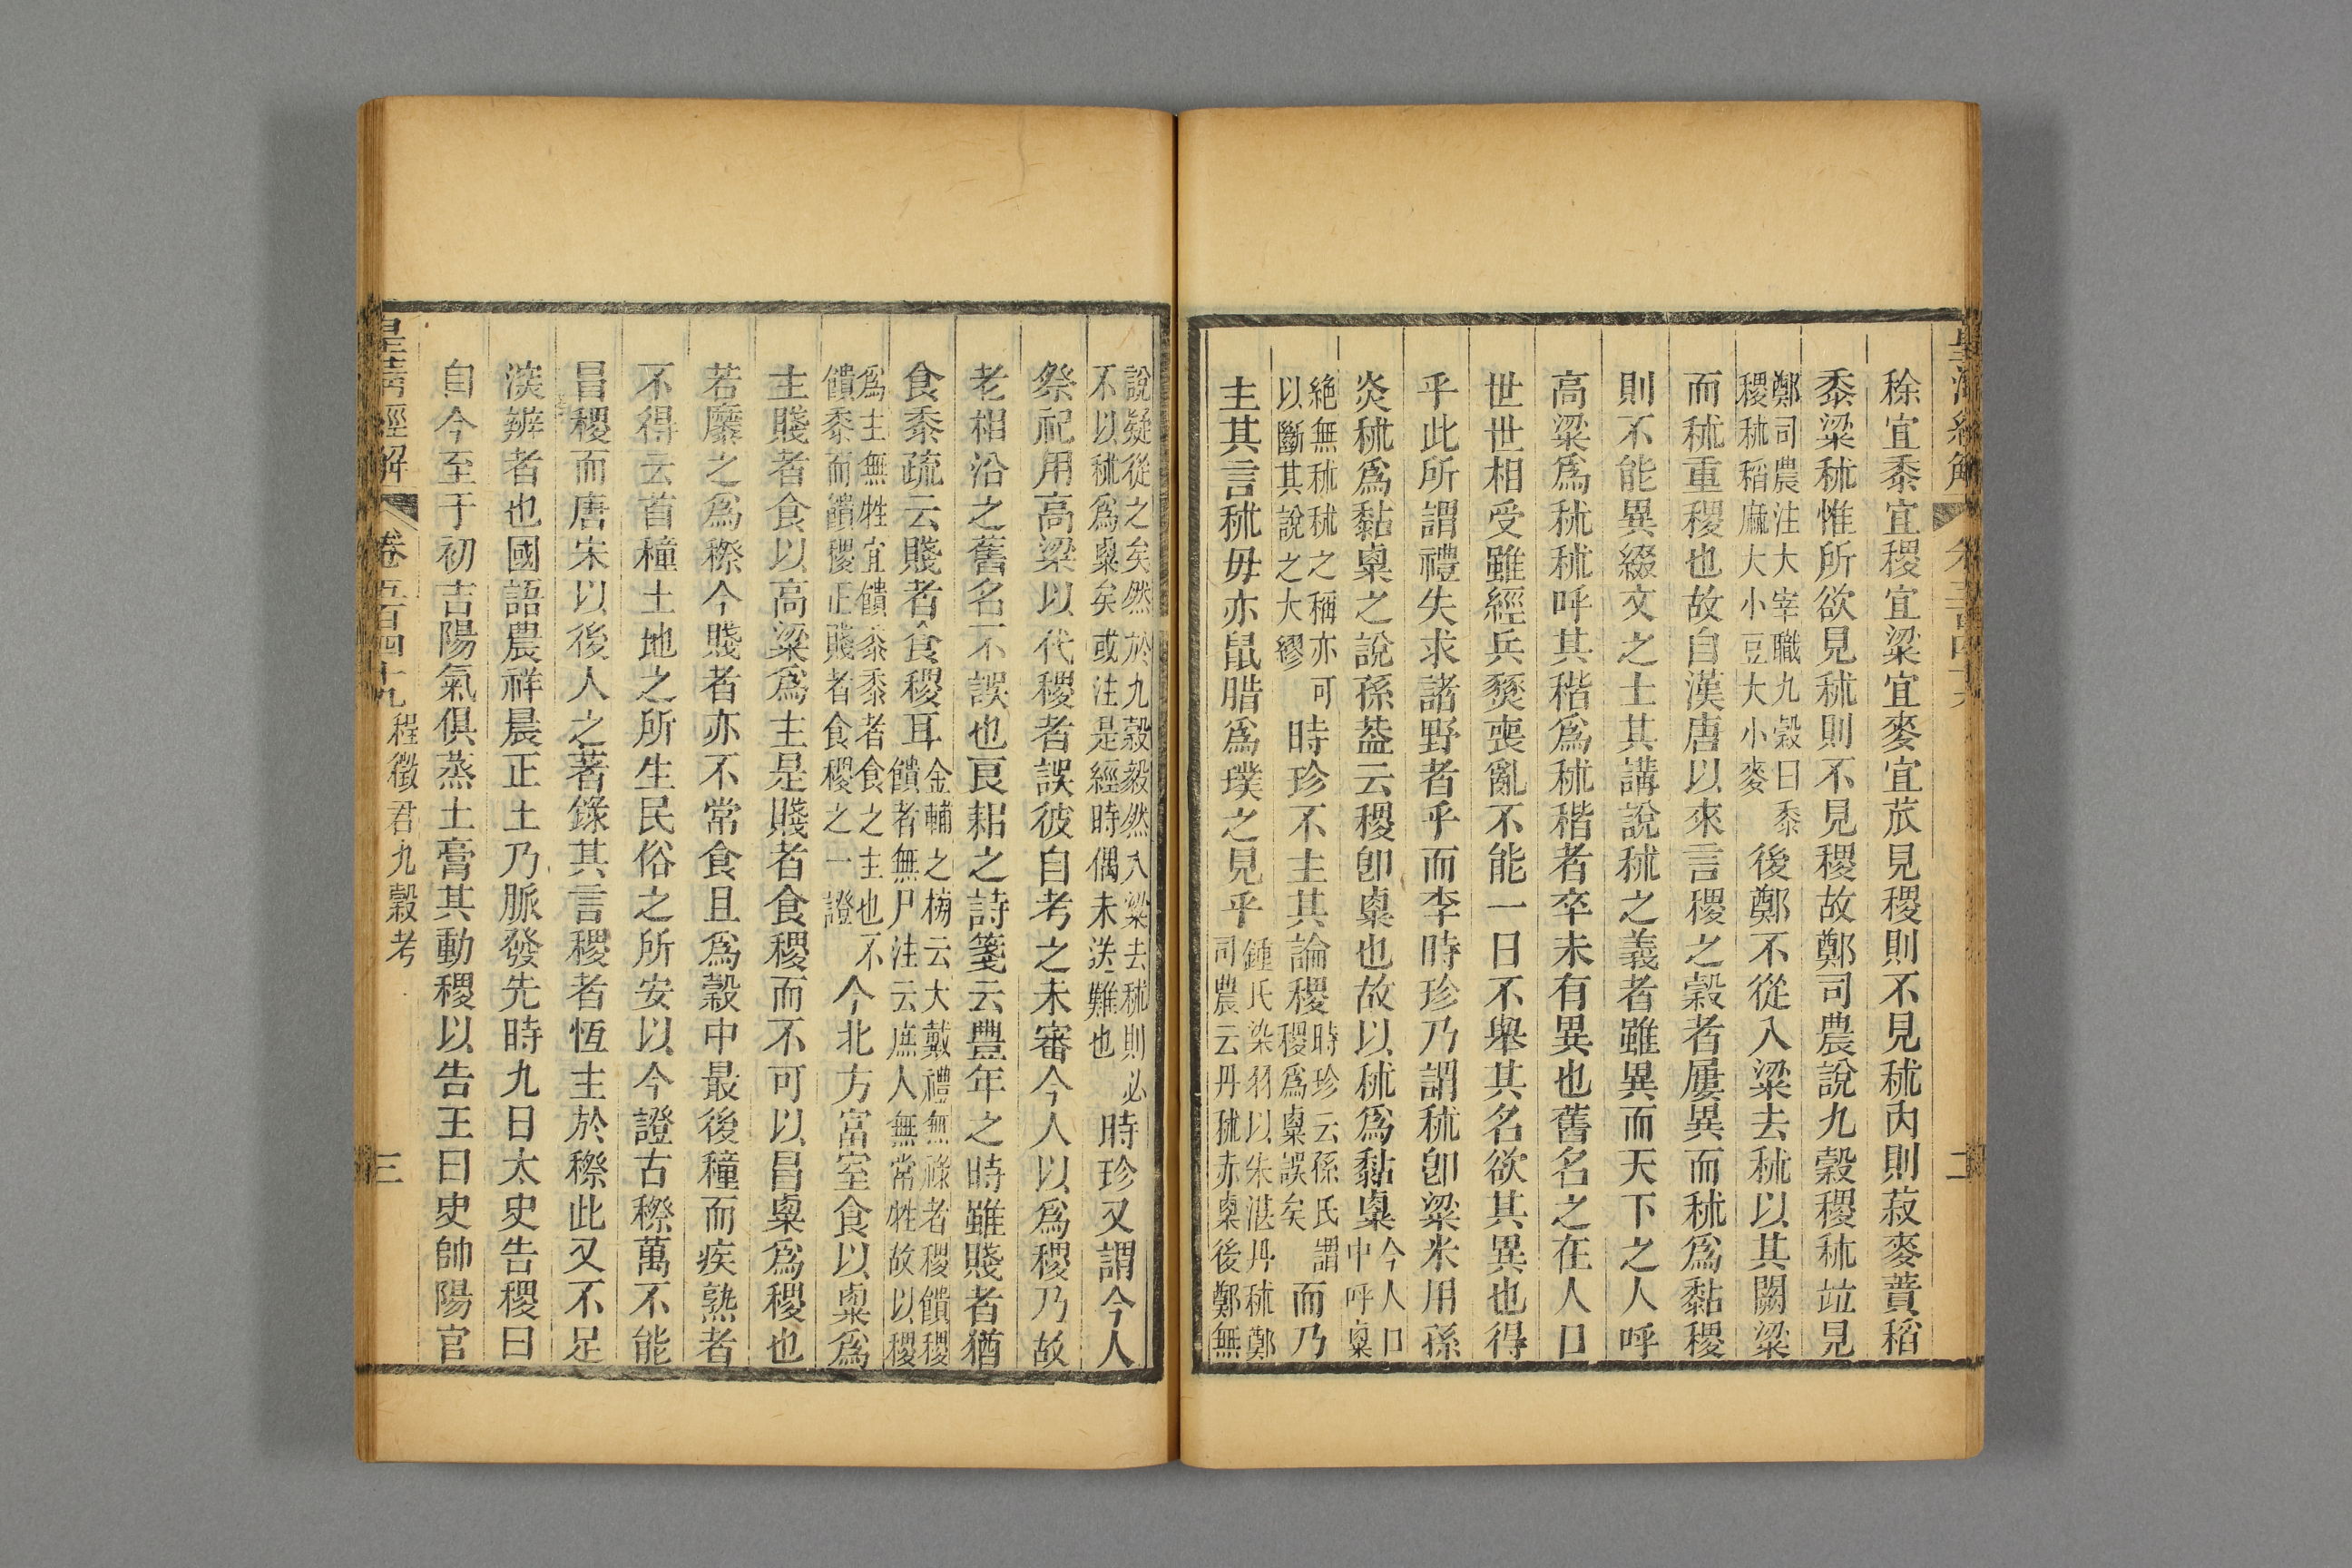 稌宜黍宜稷宜粱宜麥宜苽見稷則不見秫內則菽麥蕡稻
黍粱秫惟所欲見秫則不見稷故鄭司農說九穀稷秫竝見
鄭司農注大宰職九穀曰黍
稷秫稻麻大小豆大小麥
後鄭不從入粱去秫以其闕粱
而秫重稷也故自漢唐以來言稷之穀者屢異而秫爲黏稷
則不能異綴文之士其講說秫之義者雖異而天下之人呼
高粱爲秫秫呼其稭爲秫稭者卒未有異也舊名之在人口
世世相受雖經兵燹喪亂不能一日不舉其名欲其異也得
乎此所謂禮失求諸野者乎而李時珍乃謂秫卽粱米用孫
炎秫爲黏粟之說孫葢云稷卽粟也故以秫爲黏粟
今人口
中呼粟
絶無秫秫之稱亦可
以斷其說之大繆
時珍不主其論稷
時珍云孫氏謂
稷爲粟誤矣
而乃
主其言秫毋亦鼠腊爲璞之見乎
鍾氏染羽以朱湛丹秫鄭
司農云丹秫赤粟後鄭無
說疑從之矣然於九穀毅然入粱去秫則必
不以秫爲粟矣或注是經時偶未迭難也
時珍又謂今人
祭祀用高粱以代稷者誤彼自考之未審今人以爲稷乃故
老相沿之舊名不誤也良耜之詩箋云豐年之時雖賤者猶
食黍疏云賤者食稷耳
金輔之榜云大戴禮無祿者稷饋稷
饋者無尸注云庶人無常牲故以稷
爲主無牲宜饋黍黍者食之主也不
饋黍而饋稷正賤者食稷之一證
今北方富室食以粟爲
主賤者食以高粱爲主是賤者食稷而不可以昌粟爲稷也
若穈之爲穄今賤者亦不常食且爲穀中最後種而疾孰者
不得云首種土地之所生民俗之所安以今證古穄萬不能
昌稷而唐宋以後人之著錄其言稷者恆主於穄此又不足
湥辨者也國語農祥晨正土乃脈發先時九日太史告稷曰
自今至于初吉陽氣俱蒸土膏其動稷以告王曰史帥陽官
皇淸經解
卷五百四十九
程徵君九穀考
三